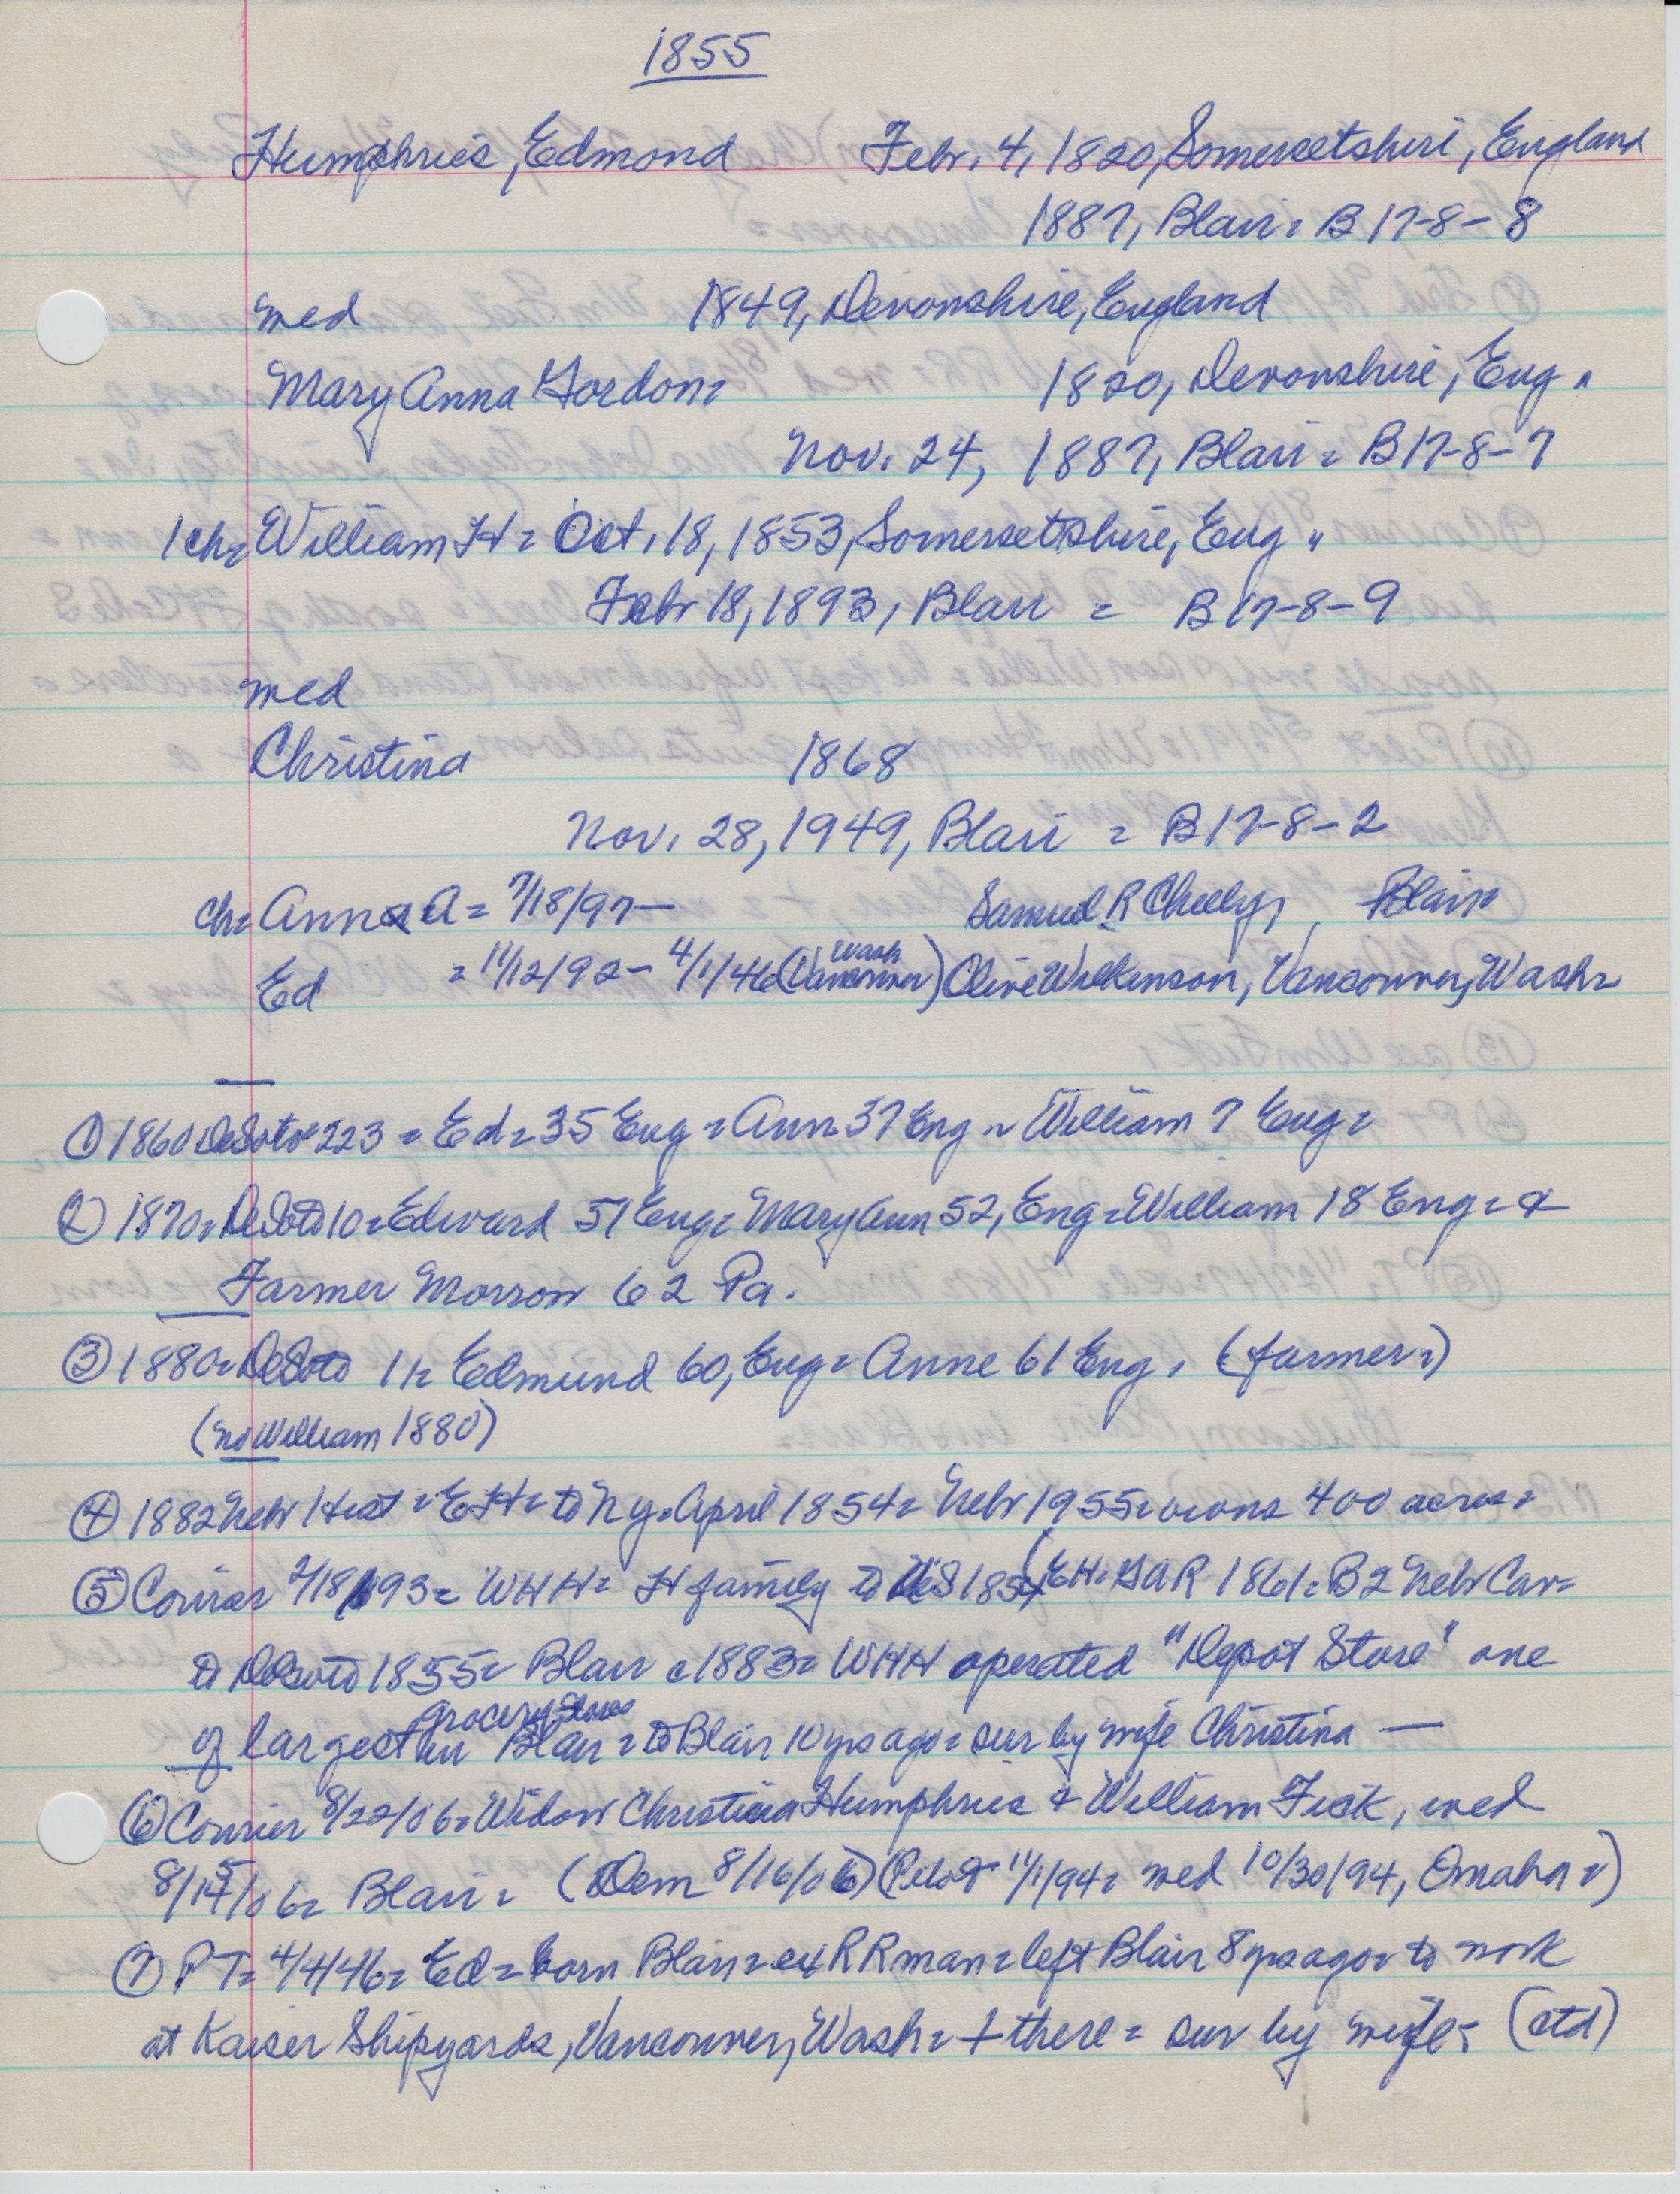 1855
Humphries, Edmond Febr. 4, 1820, Somersetshire, England
1887, Blair = B 17-8-8
med 1849, Devonshire, England
Mary Anna Gordon = 1820, Devonshire, Eng.
Nov. 24, 1887, Blair = B17-8-7
1 ch = William H = Oct. 18, 1853, Somersetshire, Eng.
Febr 18, 1893, Blair = B 17-8-9
med
Christina 1868
Nov. 28, 1949, Blair = B 17-8-2
ch = Anna A = 7/18/97 — Samuel R , Blair
Ed = 11/12/92 - 4/1/46 (Vancouver Wash) Olive Wilkinson, Vancouver, Wash =
① 1860 DeSoto 223 = Ed = 35 Eng = Ann 37 Eng = William 7 Eng =
② 1870 = DeSoto 10 = Edward 51 Eng = Mary Ann 52, Eng = William 18 Eng = &
Farmer Morrow 62 Pa.
③ 1880 = DeSoto 11 = Edmund 60, Eng = Anne 61 Eng. (farmer =)
(no William 1880)
④ 1882 Nebr Hist = EH = to NY = April 1854 = Nebr 1955 = owns 400 acres =
⑤ Courier 2/18/93 = WHH = H family to US 1854 (EH = GAR 1861 = B 2 Nebr Cav =
to DeSoto 1855 = Blair c 1883 = WHH operated "Depot Store" one
of largest grocery stores in Blair = to Blair 10 yrs ago = sur by wife Christina —
⑥ Courier 8/22/06 = Widow Christina Humphries & William Fick, med
8/15/06 = Blair = (Dem 8/16/06) (Pilot 11/1/94 = med 10/30/94, Omaha =)
⑦ PT = 4/4/46 = Ed = born Blair = ex RR man = left Blair 8 yrs ago = to work
at Kaiser Shipyards, Vancouver, Wash = + there = sur by wife = (ctd)